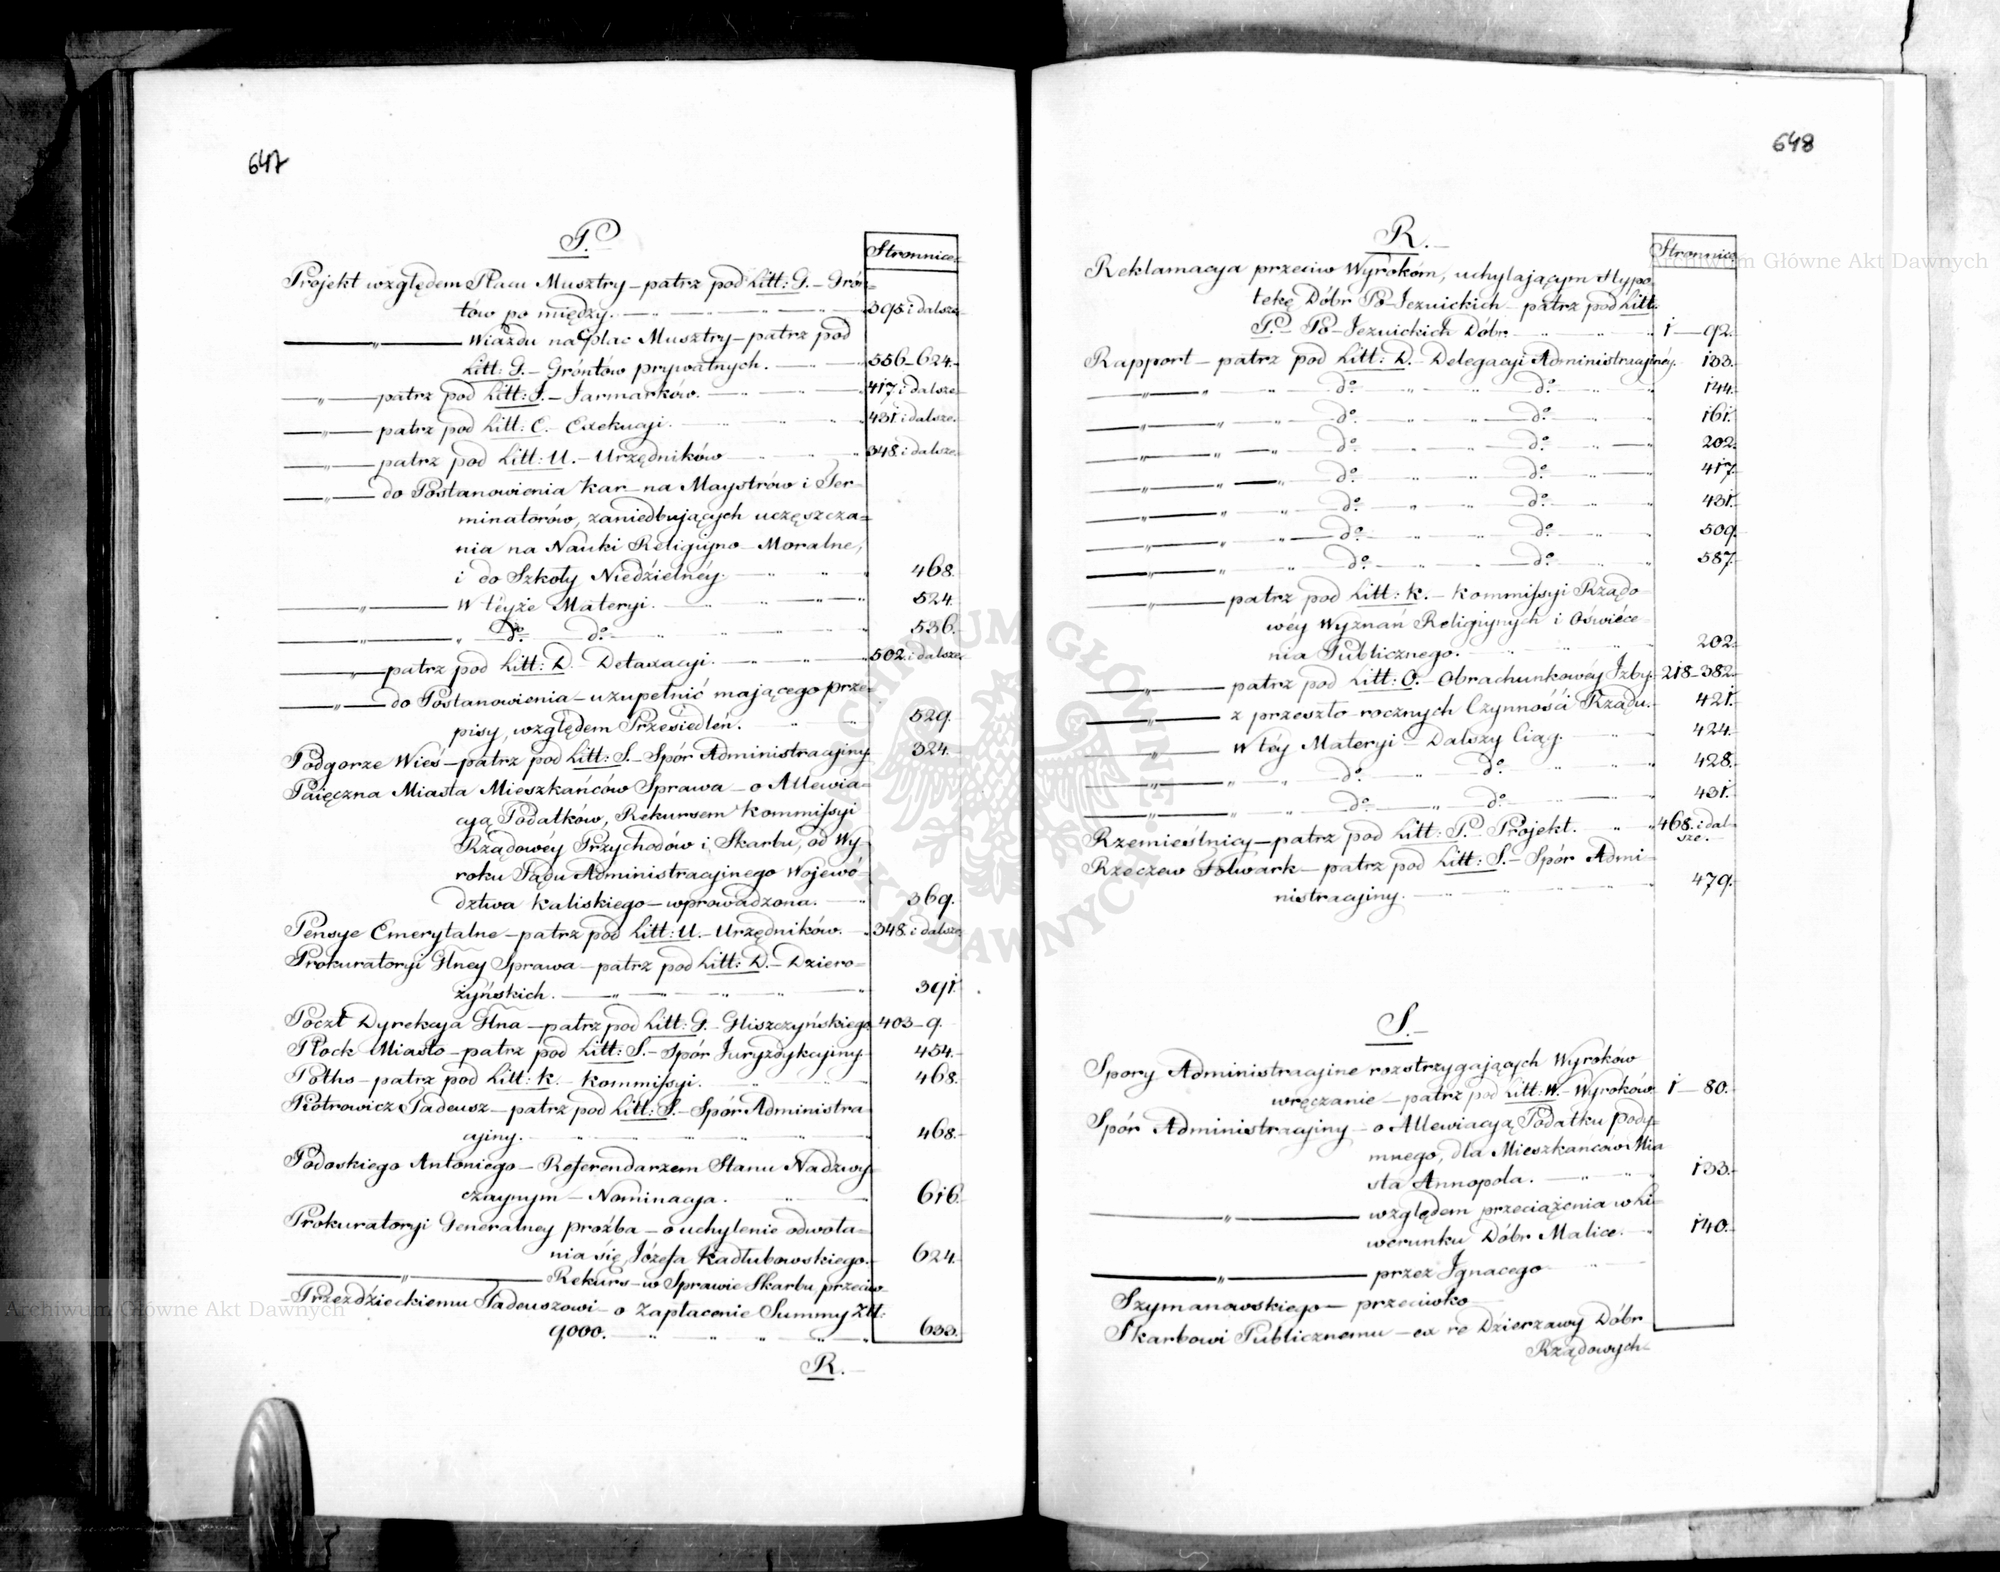 647
P.
Stronnice
Projekt względem Placu Musztry – patrz pod Litt: G. – Grón-
tów po między. 395 i dalsze
— „ — Wiazdu na plac Musztry – patrz pod
Litt: G. – Gróntów prywatnych. 556–624.
— „ — patrz pod Litt: J. – Jarmarków. 417 i dalsze
— „ — patrz pod Litt: E. – Exekucji. 431. i dalsze.
— „ — patrz pod Litt: U. – Urzędników 348. i dalsze.
— „ — do Postanowienia kar – na Maystrów i Ter-
minatorów, zaniedbujących uczęszcza-
nia na Nauki Religijno – Moralne,
i do Szkoły Niedzielnéy. 468.
— „ — W téyże Materyi. 524.
— „ — do. do. 536.
— „ — patrz pod Litt: D. – Detaxacyi. 502. i dalsze
— „ — do Postanowienia – uzupełnić mającego prze-
pisy, względem Przesiedleń. 529.
Podgorze Wieś – patrz pod Litt: S. – Spór Administracyjny. 324.
Paięczna Miasta Mieszkańców Sprawa – o Allewia-
cyą Podatków, Rekursem Kommissyi
Rządowéy Przychodów i Skarbu, od Wy-
roku Sądu Administracyjnego Wojewó-
dztwa Kaliskiego – wprowadzona. 369.
Pensye Emerytalne – patrz pod Litt: U. – Urzędników. 348. i dalsze
Prokuratoryi Głney Sprawa – patrz pod Litt: D. – Dziero-
żyńskich. 391.
Poczt Dyrekcja Głna – patrz pod Litt: G. – Gliszczyńskiego 403–9.
Płock Miasto – patrz pod Litt: S. – Spór Juryzdykcyjny. 454.
Poths – patrz pod Litt: K. – Kommissyi. 468.
Piotrowicz Tadeusz – patrz pod Litt: S. – Spór Administra-
cyjny. 468.
Podoskiego Antoniego – Referendarzem Stanu Nadzwy-
czaynym – Nominacya. 616.
Prokuratoryi Generalney proźba – o uchylenie odwoła-
nia się Józefa Kadłubowskiego. 624.
— „ — Rekurs – w Sprawie Skarbu przeciw
Przezdzieckiemu Tadeuszowi – o Zapłacenie Summy Zł:
9000. 633.
R.
648
R.
Stronnice
Reklamacya przeciw Wyrokóm, uchylającym Hypo-
tekę Dóbr Po-Jezuickich – patrz pod Litt:
P. Po-Jezuickich Dobr. 1–92.
Rapport – patrz pod Litt: D. – Delegacyi Administracyjnéy. 133.
— „ — do. do. 144.
— „ — do. do. 161.
— „ — do. do. 202.
— „ — do. do. 417.
— „ — do. do. 431.
— „ — do. do. 509.
— „ — do. do. 587.
— „ — patrz pod Litt: K. – Kommissyi Rządo-
wéy Wyznań Religijnych i Oświéce-
nia Publicznego. 202.
— „ — patrz pod Litt: O. – Obrachunkowéy Izby. 218–382.
— „ — z przeszło-rocznych Czynności Rządu. 421.
— „ — W téy Materyi – Dalszy Ciąg. 424.
— „ — do. do. 428.
— „ — do. do. 431.
Rzemieślnicy – patrz pod Litt: P. Projekt. 468. i dal-
sze.
Rzeczew Folwark – patrz pod Litt: S. – Spór Admi-
nistracyjny. 479.
S.
Spory Administracyjne rozstrzygających Wyroków
wręczanie – patrz pod Litt: W. – Wyroków 1–80.
Spór Administracyjny – o Allewiacyą Podatku Pody-
mnego, dla Mieszkańców Mia-
sta Annopola. 133.
— „ — względem przeciążenia w Li-
werunku Dóbr Malice. 140.
— „ — przez Ignacego
Szymanowskiego – przeciwko
Skarbowi Publicznemu – ex re Dzierzawy Dóbr
Rządowych
Archiwum Główne Akt Dawnych
Archiwum Główne Akt Dawnych
ARCHIWUM GŁÓWNE AKT DAWNYCH